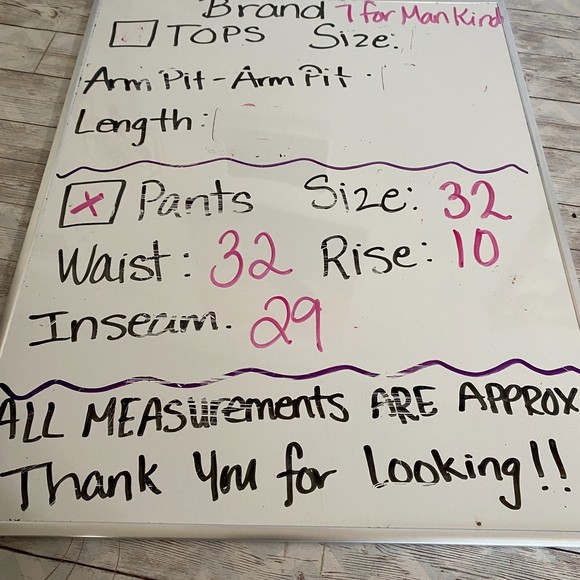 Brand 7 for Man Kind
TOPS Size:
Arm Pit - Arm Pit
Length:
x Pants Size: 32
Waist: 32 Rise: 10
Inseam. 29
ALL MEASurements ARE APPROX
Thank You for Looking!!